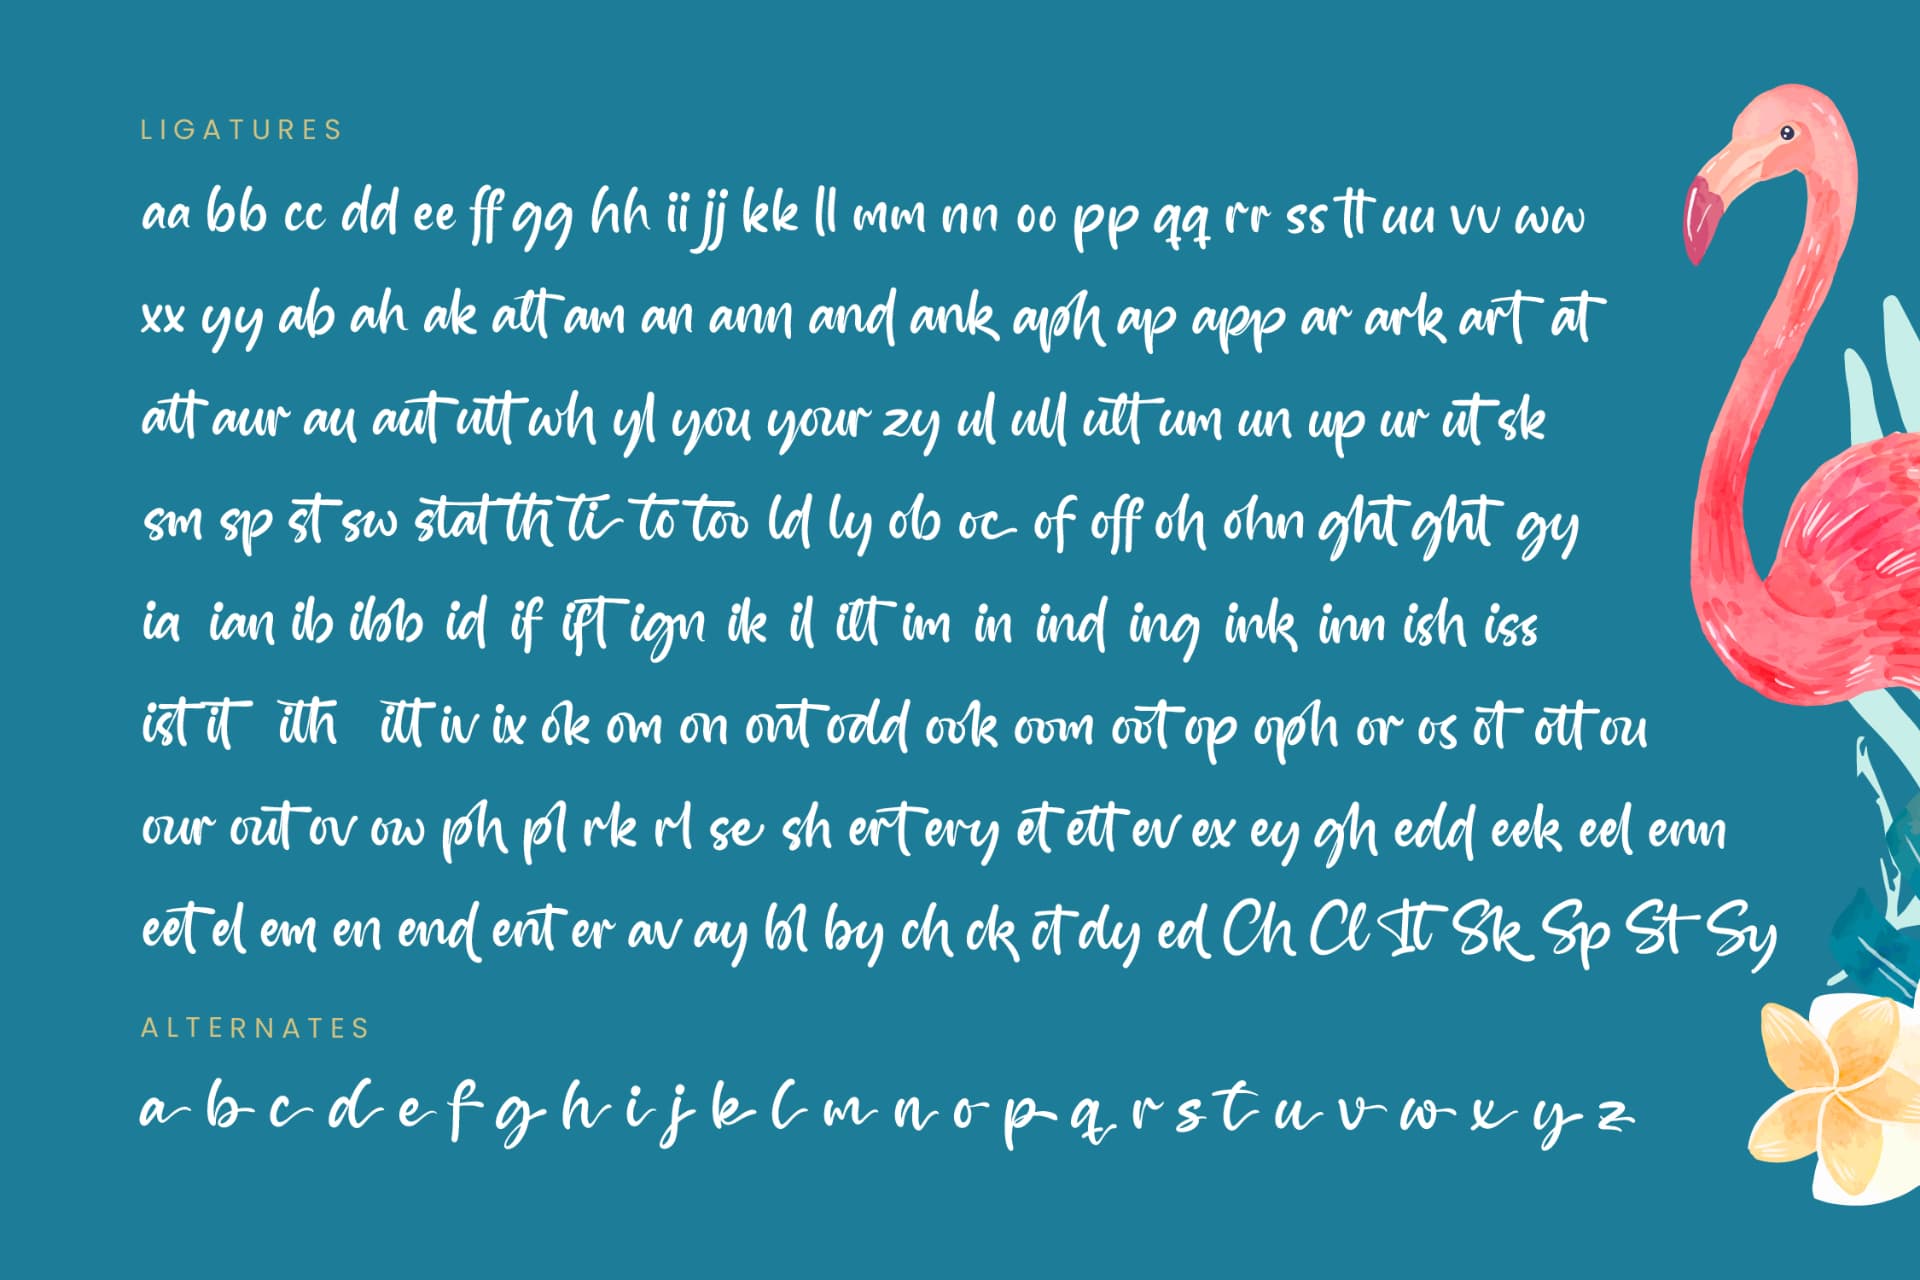 LIGATURES
aa bb cc dd ee ff gg hh ii jj kk ll mm nn oo pp qq rr ss tt uu vv ww
xx yy ab ah ak alt am an ann and ank aph ap app ar ark art at
att aur au aut utt wh yl you your zy ul ull ult um un up ur ut sk
sm sp st sw stat th ti to too ld ly ob oc of off oh ohn ght ght gy
ia ian ib ibb id if ift ign ik il ilt im in ind ing ink inn ish iss
ist it ith itt iv ix ok om on ont odd ook oom oot op oph or os ot ott ou
our out ov ow ph pl rk rl se sh ert ery et ett ev ex ey gh edd eek eel enn
eet el em en end ent er av ay bl by ch ck ct dy ed Ch Cl It Sk Sp St Sy
ALTERNATES
a b c d e f g h i j k l m n o p q r s t u v w x y z